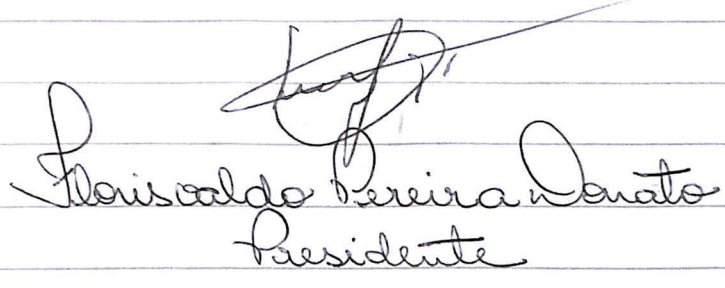 Florisvaldo Pereira Donato
Presidente